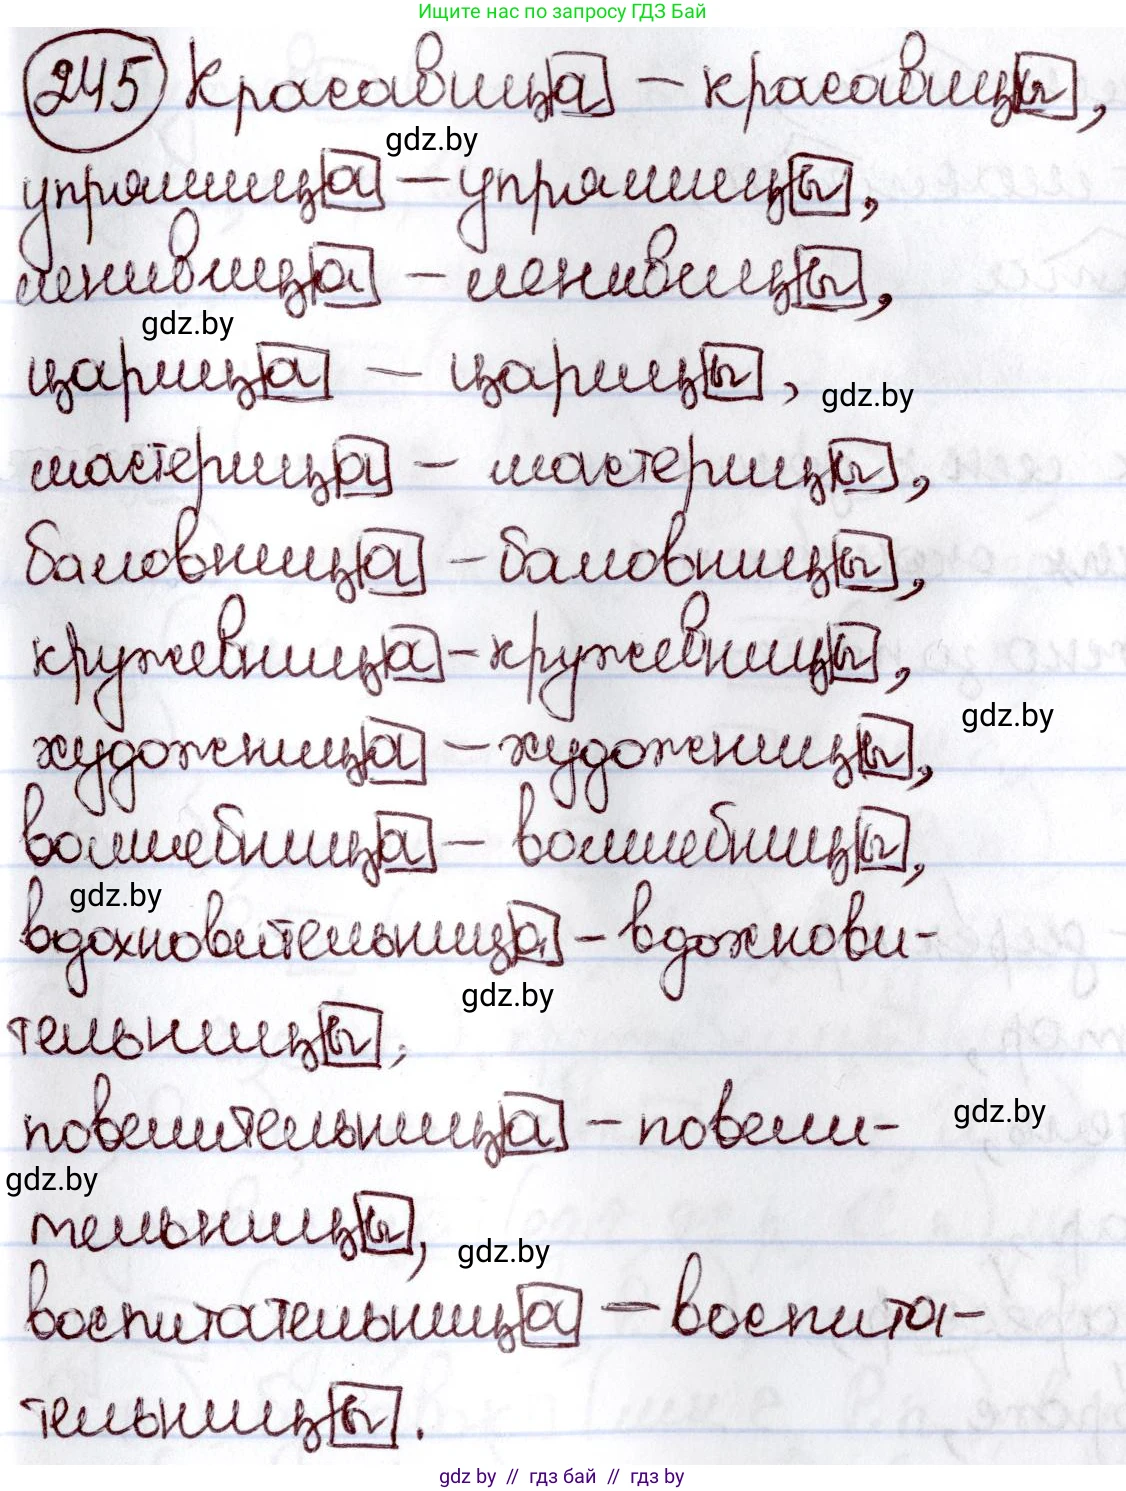 Ищите нас по запросу ГДЗ Бай
245 Красавица – красавицы,
gdz.by
упрямица – упрямицы,
ленивица – ленивицы,
gdz.by
царица – царицы,
gdz.by
мастерица – мастерицы,
баловница – баловницы,
кружевница – кружевницы,
gdz.by
художница – художницы,
волшебница – волшебницы,
gdz.by
вдохновительница – вдохнови-
gdz.by
тельницы,
gdz.by
повелительница – повели-
gdz.by
тельницы,
gdz.by
воспитательница – воспита-
тельницы.
gdz by // гдз бай // гдз by